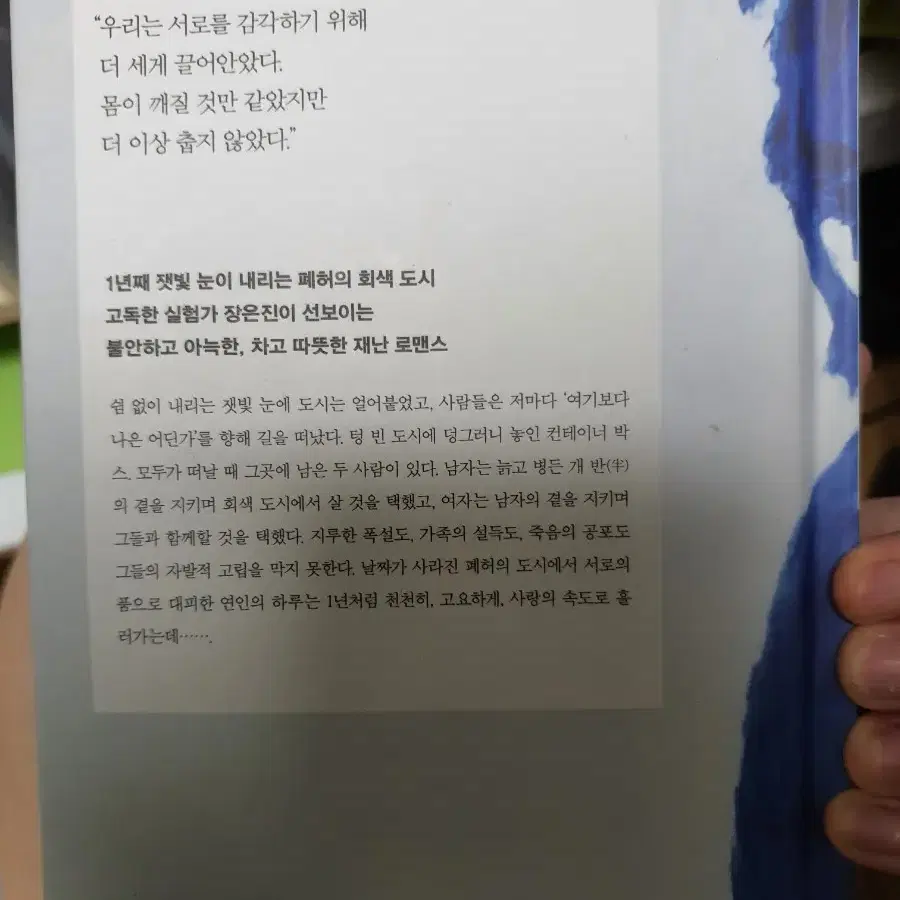 “우리는 서로를 감각하기 위해
더 세게 끌어안았다.
몸이 깨질 것만 같았지만
더 이상 춥지 않았다.”
1년째 잿빛 눈이 내리는 폐허의 회색 도시
고독한 실험가 장은진이 선보이는
불안하고 아늑한, 차고 따뜻한 재난 로맨스
쉼 없이 내리는 잿빛 눈에 도시는 얼어붙었고, 사람들은 저마다 ‘여기보다
나은 어딘가’를 향해 길을 떠났다. 텅 빈 도시에 덩그러니 놓인 컨테이너 박
스. 모두가 떠날 때 그곳에 남은 두 사람이 있다. 남자는 늙고 병든 개 반(半)
의 곁을 지키며 회색 도시에서 살 것을 택했고, 여자는 남자의 곁을 지키며
그들과 함께할 것을 택했다. 지루한 폭설도, 가족의 설득도, 죽음의 공포도
그들의 자발적 고립을 막지 못한다. 날짜가 사라진 폐허의 도시에서 서로의
품으로 대피한 연인의 하루는 1년처럼 천천히, 고요하게, 사랑의 속도로 흘
러가는데…….